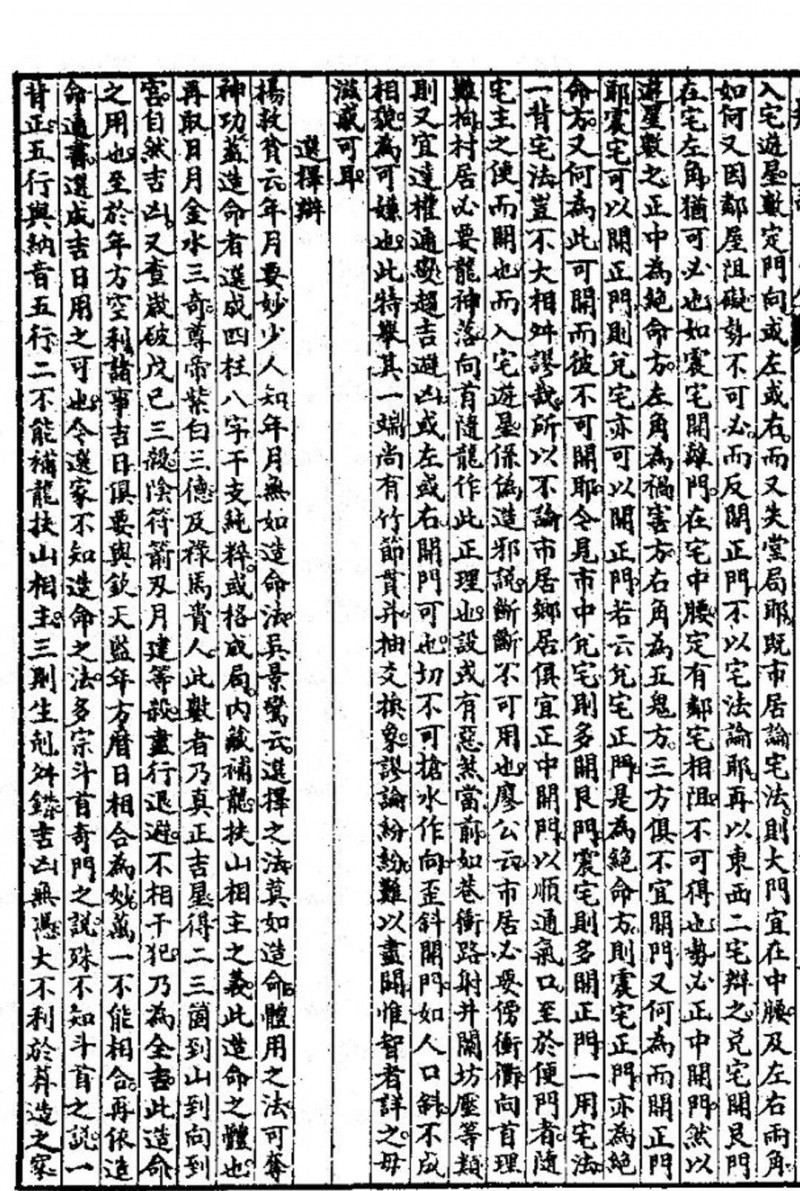 入宅遊星數定門向或左或右。而又失堂局耶。既市居論宅法。則大門宜在中腰。及左右兩角
如何又因鄰屋阻礙。勢不可必。而反開正門。不以宅法論耶。再以東西二宅辯之。兌宅開艮門
在宅左角。猶可必也。如震宅開離門。在宅中腰。定有鄰宅相阻。不可得也。勢必正中開門。然以
遊星數之。正中為絕命方。左角為禍害方。右角為五鬼方。三方俱不宜開門。又何為而開正門
耶。震宅可以開正門。則兌宅亦可以開正門。若云兌宅正門。是為絕命方。則震宅正門。亦為絕
命方。又何為此可開而彼不可開耶。今見市中兌宅則多開艮門。震宅則多開正門。一用宅法
一背宅法。豈不大相舛謬哉。所以不論市居鄉居。俱宜正中開門。以順通氣口。至於便門者。隨
宅主之便而開也。而入宅遊星。係偽造邪說。斷斷不可用也。廖公云。市居必要傍衝衢。向首理
難拘。村居必要龍神落。向首隨龍作。此正理也。設或有惡煞當前。如巷衝路射井闌坊壓等類
則又宜達權通變。趨吉避凶。或左或右開門可也。切不可搶水作向。歪斜開門。如人口斜。不成
相貌。為可嫌也。此特舉其一端。尚有竹節貫井。抽爻換象。謬論紛紛。難以盡闢。惟智者詳之。毋
滋惑可耳。
選擇辯
楊救貧云。年月要妙少人知。年月無如造命法。吳景鸞云。選擇之法。莫如造命。體用之法。可奪
神功。蓋造命者。選成四柱八字。干支純粹。或格成局。內藏補龍扶山相主之義。此造命之體也
再取日月金水三奇尊帝紫白三德及祿馬貴人。此數者乃真正吉星。得二三箇到山到向到
宮。自然吉凶。又查歲破戊己三殺陰符箭刃月建等殺。盡行退避。不相干犯。乃為全吉。此造命
之用也。至於年方空利。諸事吉日。俱要與欽天監年方曆日相合為妙。萬一不能相合。再依造
命通書。選成吉日用之可也。今選家不知造命之法。多宗斗首奇門之說。殊不知斗首之說。一
背正五行與納音五行。二不能補龍扶山相主。三則生剋舛錯。吉凶無憑。大不利於葬造之家